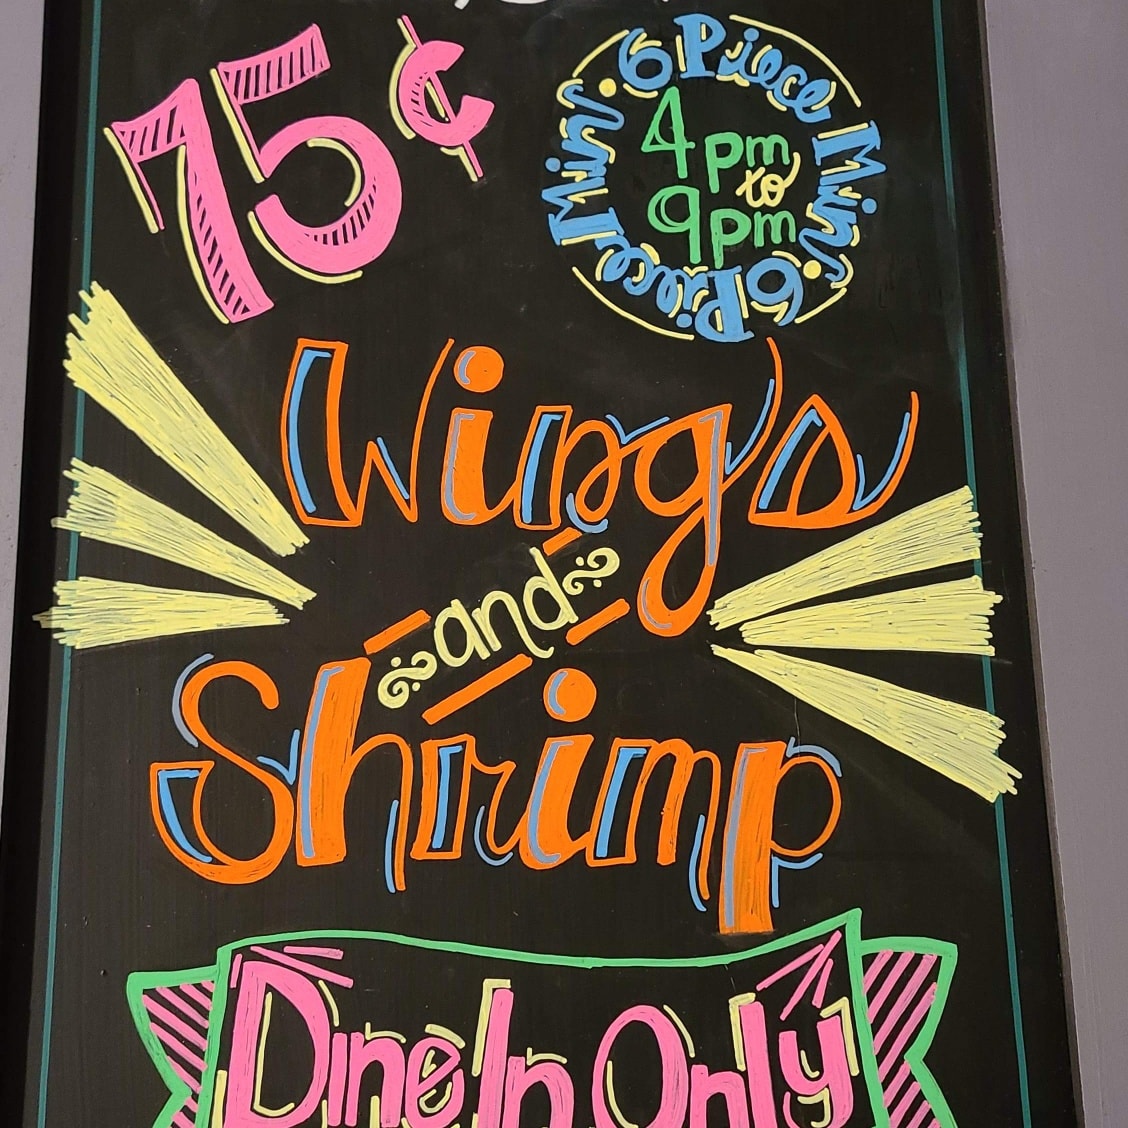 75¢
6 Piece Min. 6 Piece Min.
4pm
to
9pm
Wings
and
Shrimp
Dine In Only